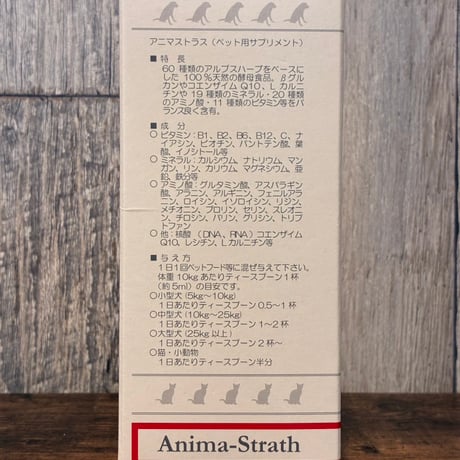 アニマストラス (ペット用サプリメント)
■ 特 長
60 種類のアルプスハーブをベースに
した 100%天然の酵母食品。βグル
カンやコエンザイム Q10、L カルニ
チンや 19 種類のミネラル・20 種類
のアミノ酸・11 種類のビタミン等をバ
ランス良く含有。
■ 成 分
○ ビタミン：B1、B2、B6、B12、C、ナ
イアシン、ビオチン、パントテン酸、葉
酸、イノシトール等
○ ミネラル：カルシウム、ナトリウム、マン
ガン、リン、カリウム、マグネシウム、亜
鉛、鉄分等
○ アミノ酸：グルタミン酸、アスパラギン
酸、アラニン、アルギニン、フェニルアラ
ニン、ロイシン、イソロイシン、リジン、
メチオニン、プロリン、セリン、スレオニ
ン、チロシン、バリン、グリシン、トリプ
トファン
○ 他：核酸 (DNA、RNA) コエンザイム
Q10、レシチン、Lカルニチン等
■ 与え方
1日1回ペットフード等に混ぜ与えて下さい。
体重 10kg あたりティースプーン1杯
(約5ml) の目安です。
○小型犬 (5kg～10kg)
1日あたりティースプーン 0.5～1 杯
○中型犬 (10kg～25kg)
1日あたりティースプーン 1～2 杯
○大型犬 (25kg 以上)
1日あたりティースプーン 2 杯～
○猫・小動物
1日あたりティースプーン半分
Anima-Strath